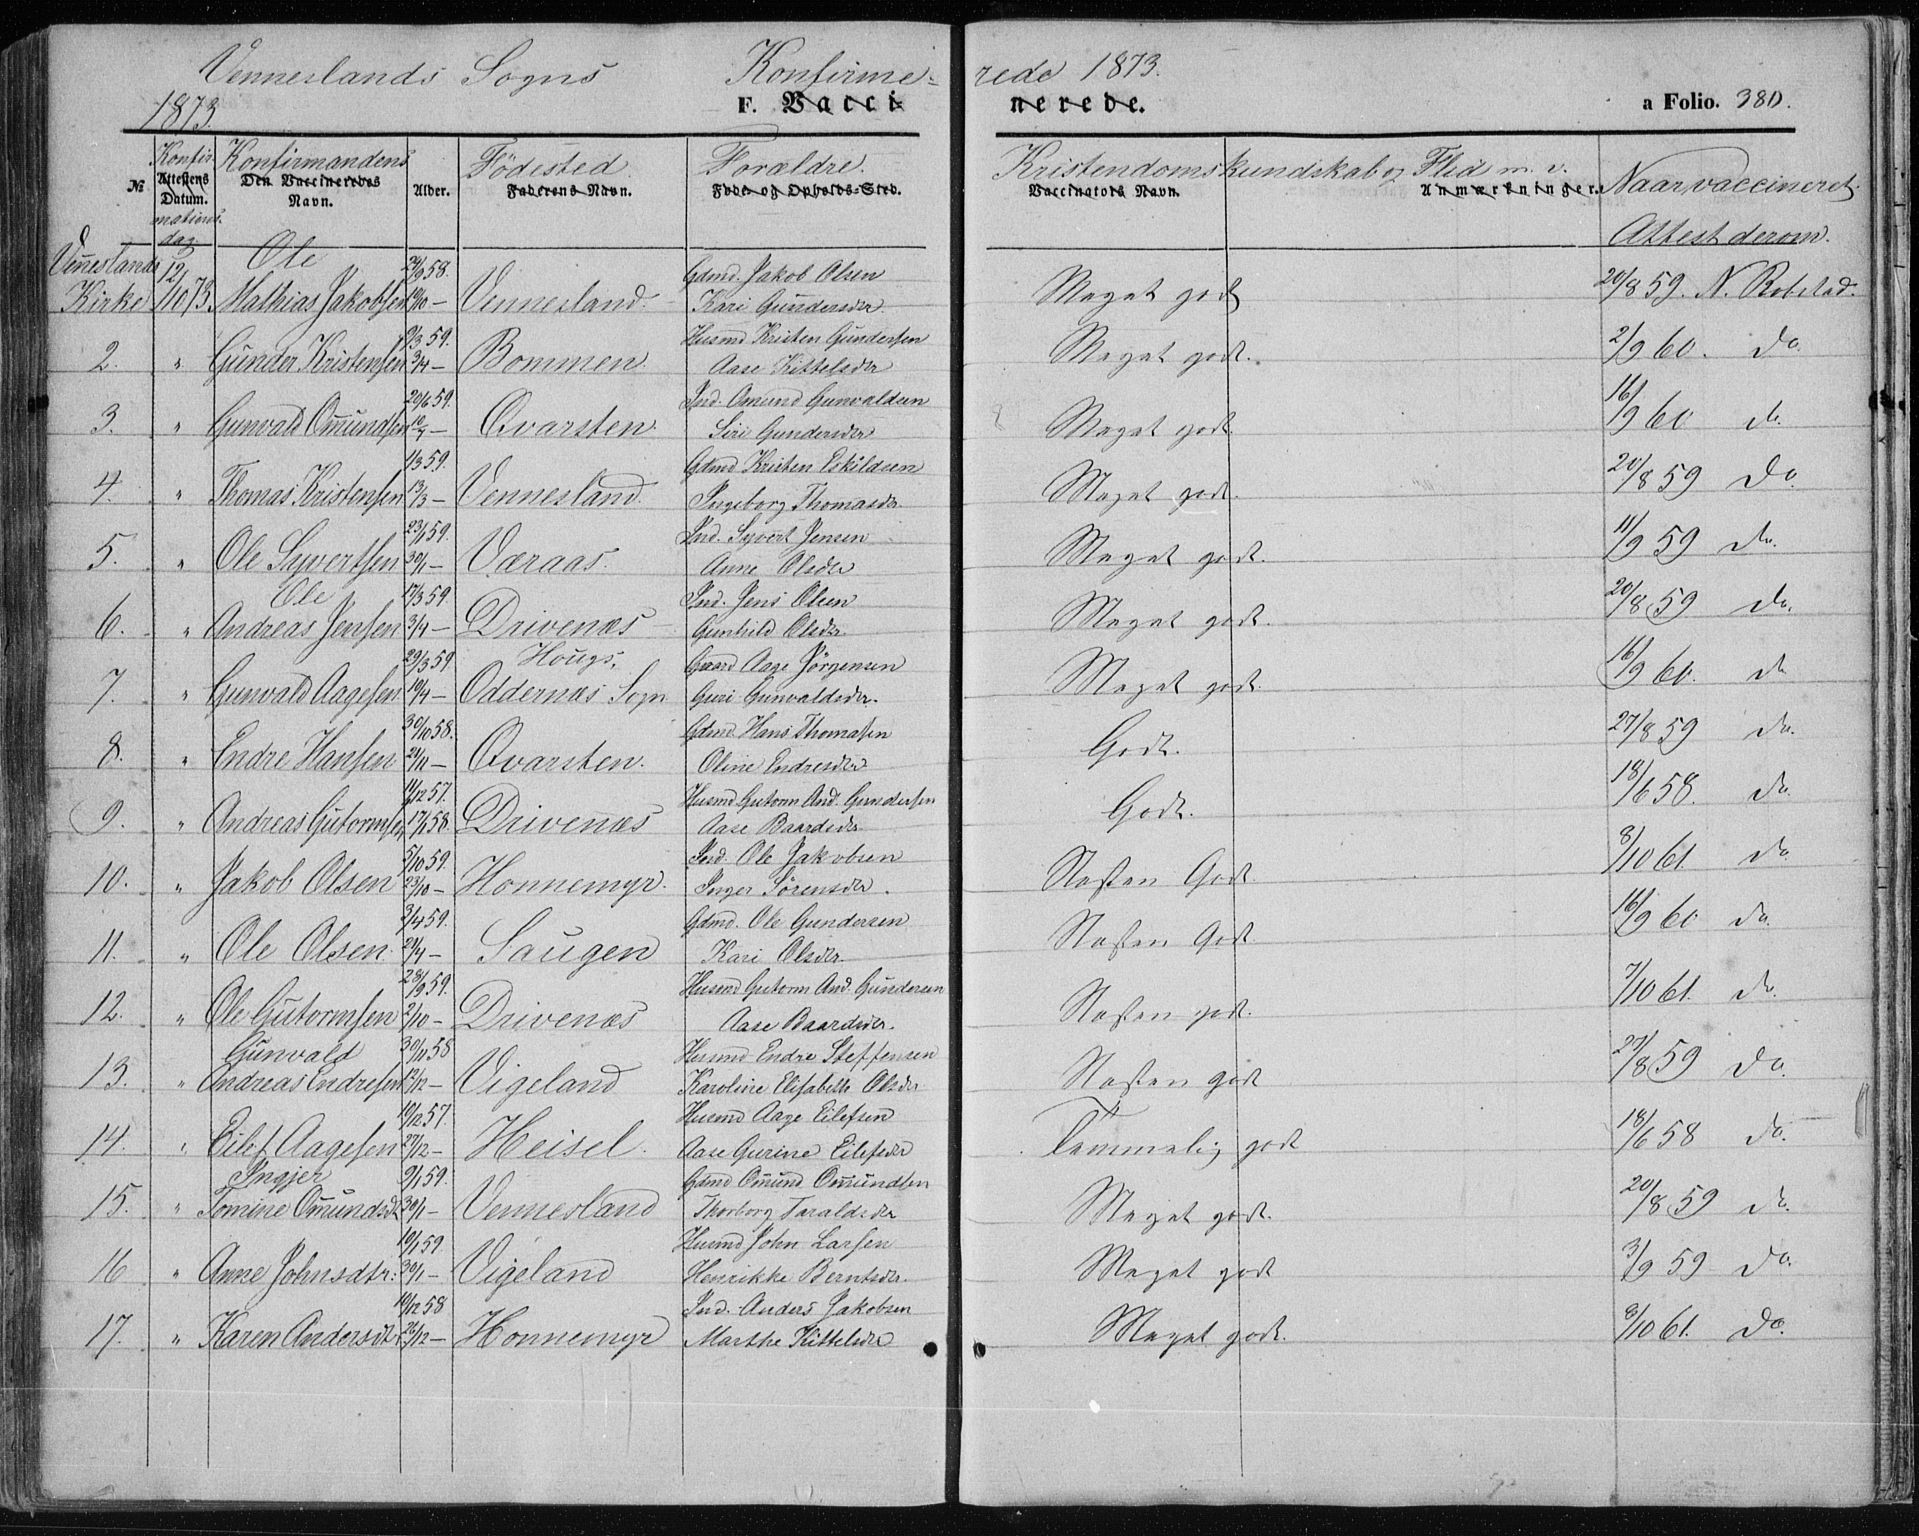 Venneslands Sogns Konfirme- rede 1873.
1873. F. Vacci- nerede. a Folio. 380.
№ Konfir- Attestens Datum. mations- dag Konfirmandens Den Vaccineredes Navn. Alder. Födested. Faderens Navn. Forældre. Føde- og Opholds-Sted. Kristendomskundskab og Flid m. v. Vaccinators Navn. Anmærkninger. Naar vaccineret.
Attest derom.
Venneslands 12/ Ole 29/9 58. Gdmd. Jakob Olsen
Kirke 10 73. Mathias Jakobsen 10/10 — Vennesland. Kari Gundersdtr. Meget godt 20/8 59. N. Robstad.
9/3 59. Husmd Kristen Gundersen
2. " Gunder Kristensen 3/4 — Bommen. Aase Kittelsdtr Meget godt. 2/9 60. do
20/6 59. Ind. Omund Gunvaldsen
3. " Gunvald Omundsen 10/7 — Qvarsten. Siri Gundersdtr Meget godt. 16/9 60 do.
1/3 59. Gdmd Kristen Eskildsen
4. " Thomas Kristensen 13/3 — Vennesland. Ingeborg Thomasdtr Meget godt. 20/8 59 Do.
23/1 59. Ind. Syvert Jensen
5. " Ole Syvertsen 30/1 — Væraas. Anne Olsdtr Meget godt. 11/9 59 do.
Ole 17/3 59. Ind. Jens Olsen
6. " Andreas Jensen 3/4 — Drivenæs Gunhild Olsdtr. Meget godt. 20/8 59 do.
29/3 59 Hougs, Gaard Aage Jørgensen
7. " Gunvald Aagesen 10/4 — Oddernæs Sogn Guri Gunvaldsdtr. Meget godt. 16/9 60. do
30/10 58. Gdmd. Hans Thomasen
8. " Endre Hansen 21/11 — Qvarsten. Oline Endresdtr Godt. 27/8 59 do.
11/12 57. Husmd Gutorm And. Gundersen
9. " Andreas Gutormsen 17/1 58. Drivenæs Aase Baardsdtr Godt. 18/6 58. do.
5/10 59. Ind. Ole Jakobsen
10. " Jakob Olsen 23/10 — Honnemyr. Inger Sörensdtr. Næsten Godt 8/10 61. do
3/4 59. Gdmd. Ole Gundersen
11. " Ole Olsen. 21/4 — Saugen Kari Olsdtr. Næsten Godt 16/9 60 do.
28/9 59. Husmd Gutorm And. Gundersen
12. " Ole Gutormsen 2/10 — Drivenæs Aase Baardsdtr. Næsten godt. 7/10 61. do.
Gunvald 30/11 58 Husmd Endre Steffensen
13. " Andreas Endresen 12/12 — Vigeland Karoline Elisabeth Olsdtr Næsten godt 27/8 59 Do.
10/12 57. Husmd Aage Eilefsen
14. " Eilef Aagesen 27/12 — Heisel. Aase Gurine Eilefsdtr Temmelig godt 18/6 58 do.
Ingjer 9/1 59. Gdmd Omund Omundsen
15. " Tomine Omundsdtr 30/1 — Vennesland Thorborg Taraldsdtr Meget godt. 20/8 59 do.
10/1 59 Husmd John Larsen
16 " Anne Johnsdtr: 30/1 — Vigeland Henrikke Berntsdtr. Meget godt 3/9 59 Do.
10/12 58 Ind. Anders Jakobsen
17. " Karen Andersdtr 26/12 — Honnemyr Marthe Kittelsdtr Meget godt. 8/10 61. Do.